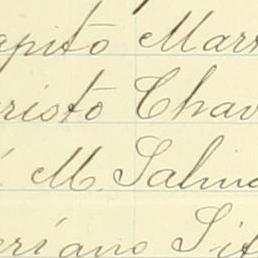 apito Marr
risto Chav
M. Salin
eriano Sif